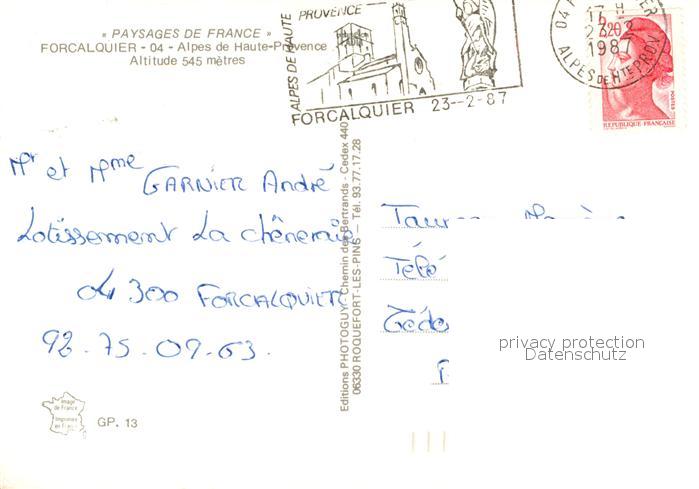 « PAYSAGES DE FRANCE »
FORCALQUIER - 04 - Alpes de Haute-Provence
Altitude 545 mètres
ALPES DE HAUTE
PROVENCE
FORCALQUIER 23--2-87
17 H
23-2
1987
ALPES DE HTE PROV
2,20
POSTES
REPUBLIQUE FRANÇAISE
Mr et Mme GARNIER André
Lotissement La chêneraie
04 300 FORCALQUIER
92.75.09.63.
Editions PHOTOGUY Chemin des Bertrands - Cedex 440
06330 ROQUEFORT-LES-PINS - Tél. 93.77.17.28
privacy protection
Datenschutz
Image
de France
Imprimée
en France
GP. 13